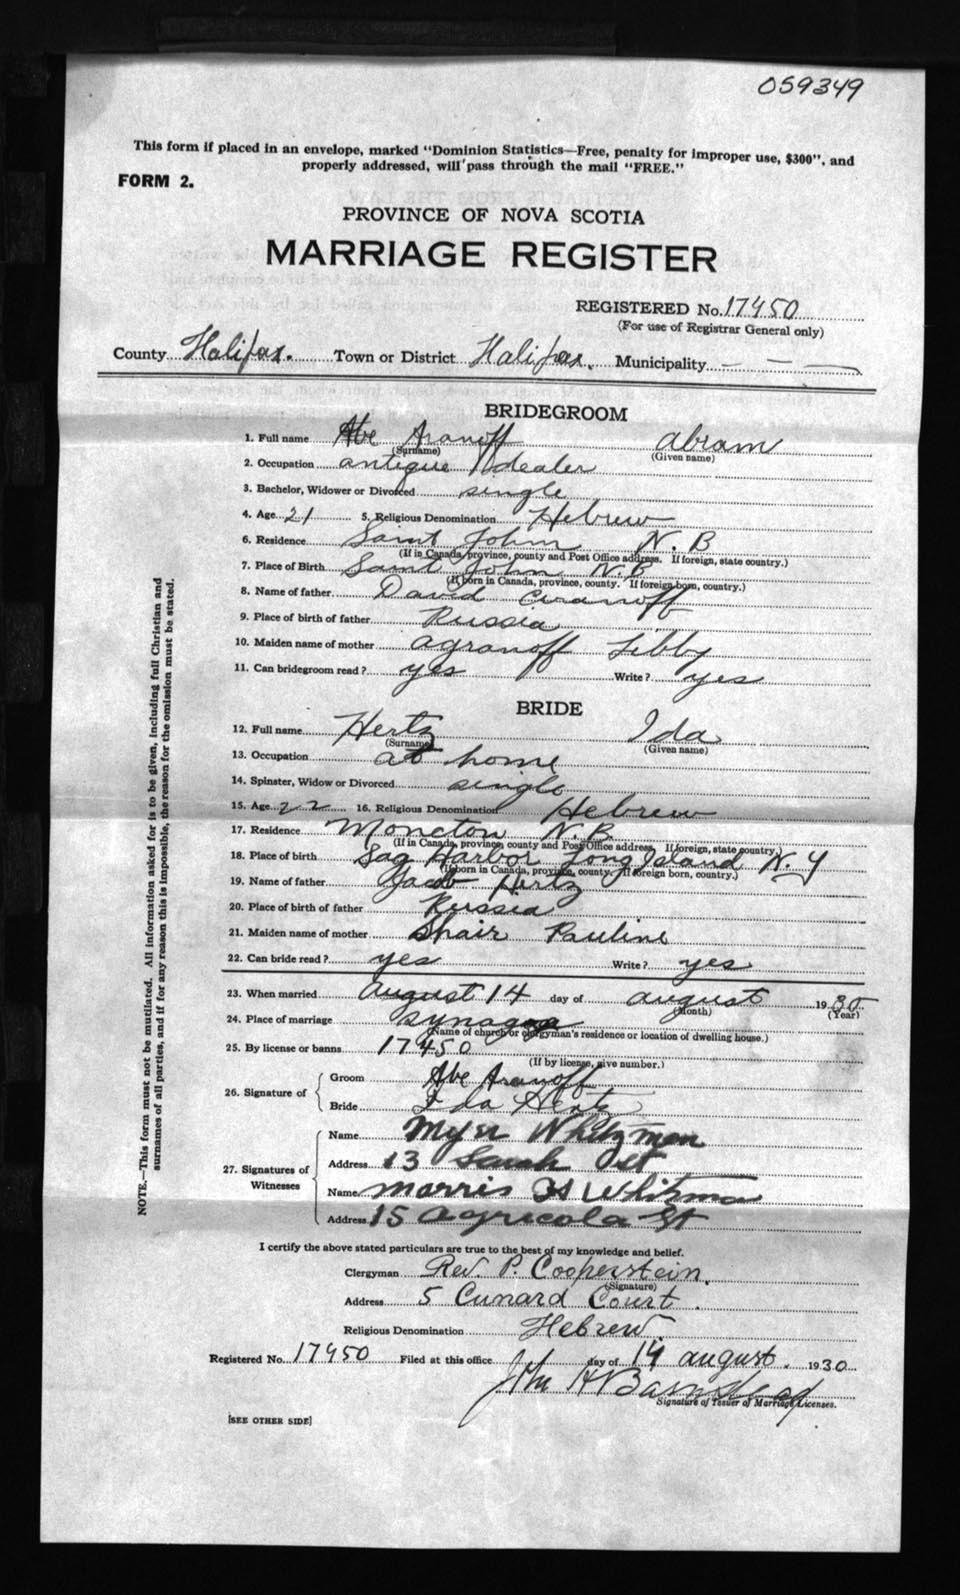 059349
This form if placed in an envelope, marked "Dominion Statistics—Free, penalty for improper use, $300", and
properly addressed, will pass through the mail "FREE."
FORM 2.
PROVINCE OF NOVA SCOTIA
MARRIAGE REGISTER
REGISTERED No. 17450
(For use of Registrar General only)
County Halifax. Town or District Halifax. Municipality — —
BRIDEGROOM
1. Full name Abe Aranoff abram
(Surname) (Given name)
2. Occupation antique dealer
3. Bachelor, Widower or Divorced single
4. Age 21 5. Religious Denomination Hebrew
6. Residence Saint John N.B
(If in Canada, province, county and Post Office address. If foreign, state country.)
7. Place of Birth Saint John N.B
(If born in Canada, province, county. If foreign born, country.)
8. Name of father David Aranoff
9. Place of birth of father Russia
10. Maiden name of mother Agranoff Libby
11. Can bridegroom read? yes Write? yes
BRIDE
12. Full name Hertz Ida
(Surname) (Given name)
13. Occupation at home
14. Spinster, Widow or Divorced single
15. Age 22 16. Religious Denomination Hebrew
17. Residence Moncton N.B.
(If in Canada, province, county and Post Office address. If foreign, state country.)
18. Place of birth Sag Harbor Long Island N.Y
(If born in Canada, province, county. If foreign born, country.)
19. Name of father Jacob Hertz
20. Place of birth of father Russia
21. Maiden name of mother Shair Pauline
22. Can bride read? yes Write? yes
23. When married august 14 day of august 1930
(Month) (Year)
24. Place of marriage
(Name of church or clergyman's residence or location of dwelling house.)
25. By license or banns 17450
(If by license, give number.)
26. Signature of
Groom Abe Aranoff
Bride Ida Hertz
27. Signatures of Witnesses
Name Myer Whitzman
Address 13 Sarah St
Name Morris H Whitzman
Address 15 Agricola St
I certify the above stated particulars are true to the best of my knowledge and belief.
Clergyman Rev. P. Cooperstein.
(Signature)
Address 5 Cunard Court.
Religious Denomination Hebrew.
Registered No. 17450 Filed at this office day of 14 august. 1930
John H Barnstead
Signature of Issuer of Marriage Licenses.
[SEE OTHER SIDE]
NOTE.—This form must not be mutilated. All information asked for is to be given, including full Christian and
surnames of all parties, and if for any reason this is impossible, the reason for the omission must be stated.